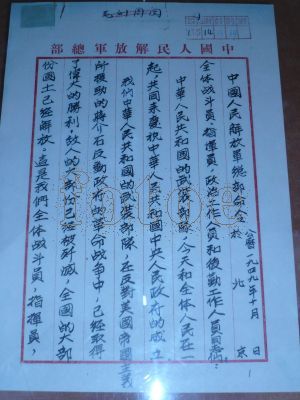 中國人民解放軍總部
中國人民解放軍總部命令 於
公曆一九四九年十月 日
北京
全体战斗員、指揮員、政治工作人員和後勤工作人員同志們:
中華人民共和國的武装部隊,今天和全体人民在一
起,共同來慶祝中華人民共和國中央人民政府的成立。
我們中華人民共和國的武装部隊,在反對美國帝國主义
所援助的蔣介石反動政府的革命战争中,已經取得
了偉大的勝利,敌人的大部分已經被歼滅,全國的大部
份國土已經解放。這是我們全体战斗員,指揮員,